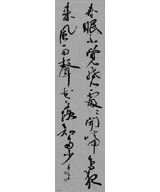 春眠不覺曉處々聞啼鳥夜
來風雨聲花落知多少